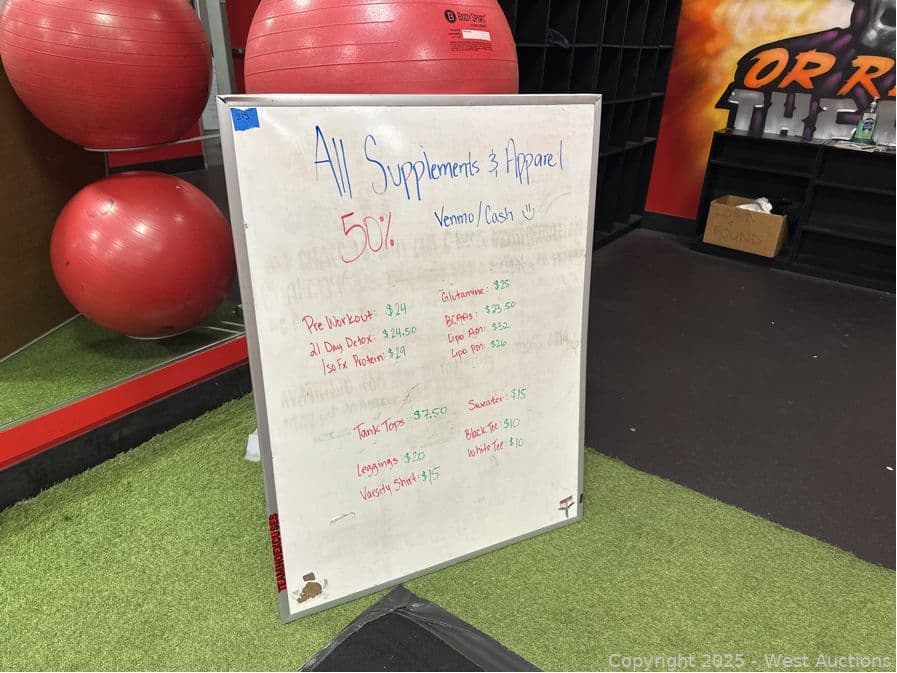 BODYSPORT
OR R
THE
LOST
FOUND
215
All Supplements & Apparel
50%
Venmo/Cash
Pre Workout: $24
21 Day Detox: $24.50
IsoFx Protein: $29
Glutamine: $25
BCAAs: $23.50
Lipo Am: $32
Lipo Pm: $26
Tank Tops: $7.50
Leggings: $20
Varsity Shirt: $15
Sweater: $15
Black Tee: $10
White Tee: $10
Copyright 2025 - West Auctions